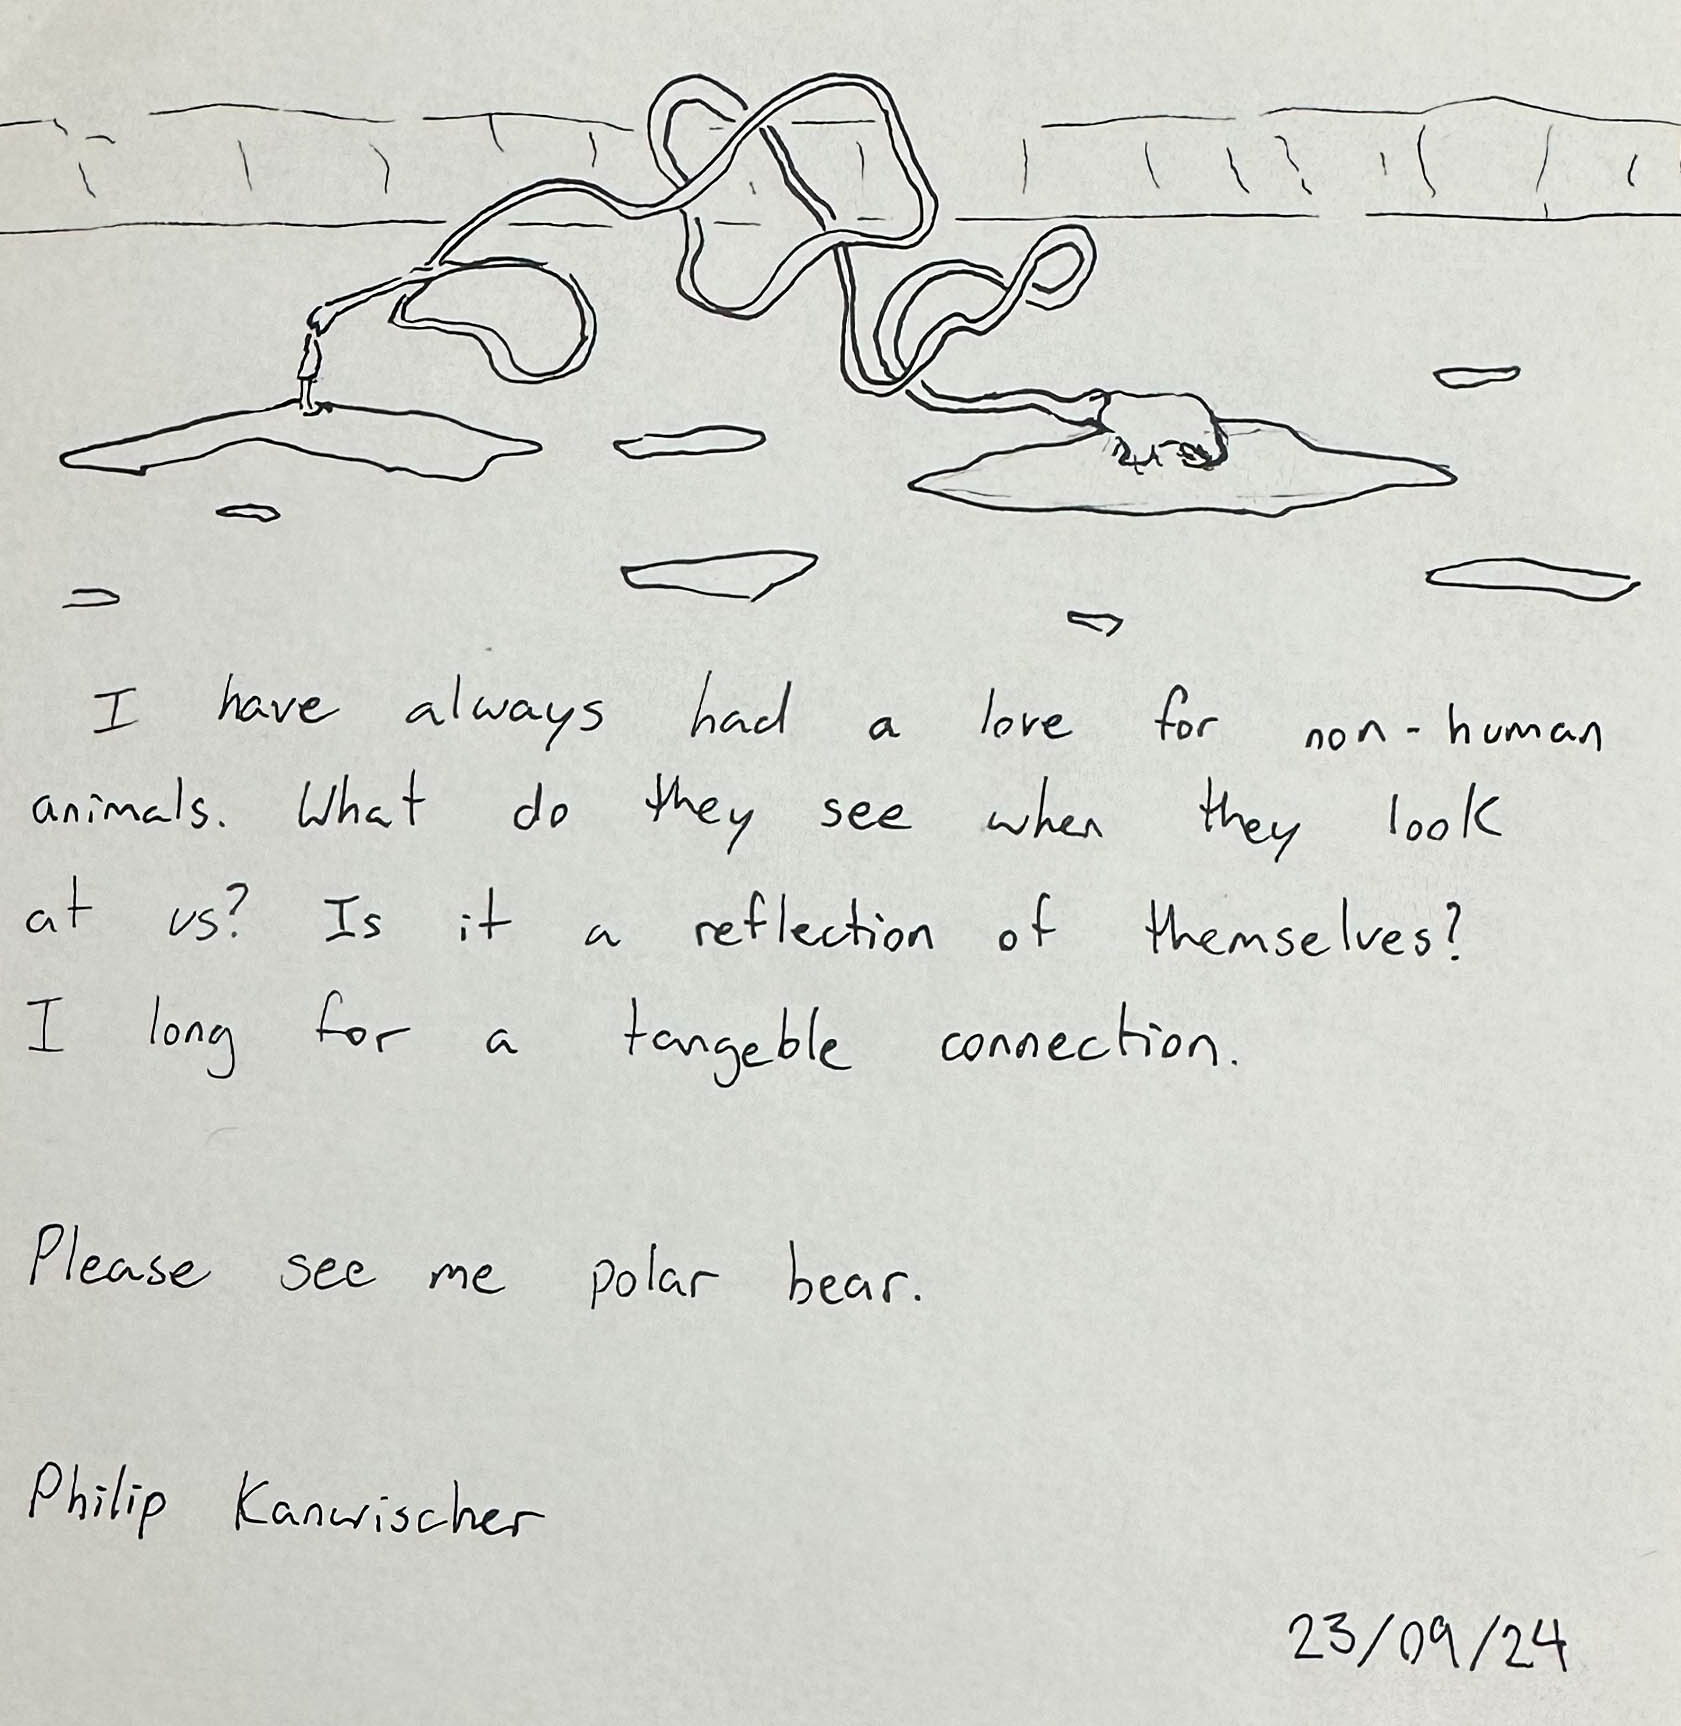 I have always had a love for non-human
animals. What do they see when they look
at us? Is it a reflection of themselves?
I long for a tangeble connection.
Please see me polar bear.
Philip Kanwischer
23/09/24